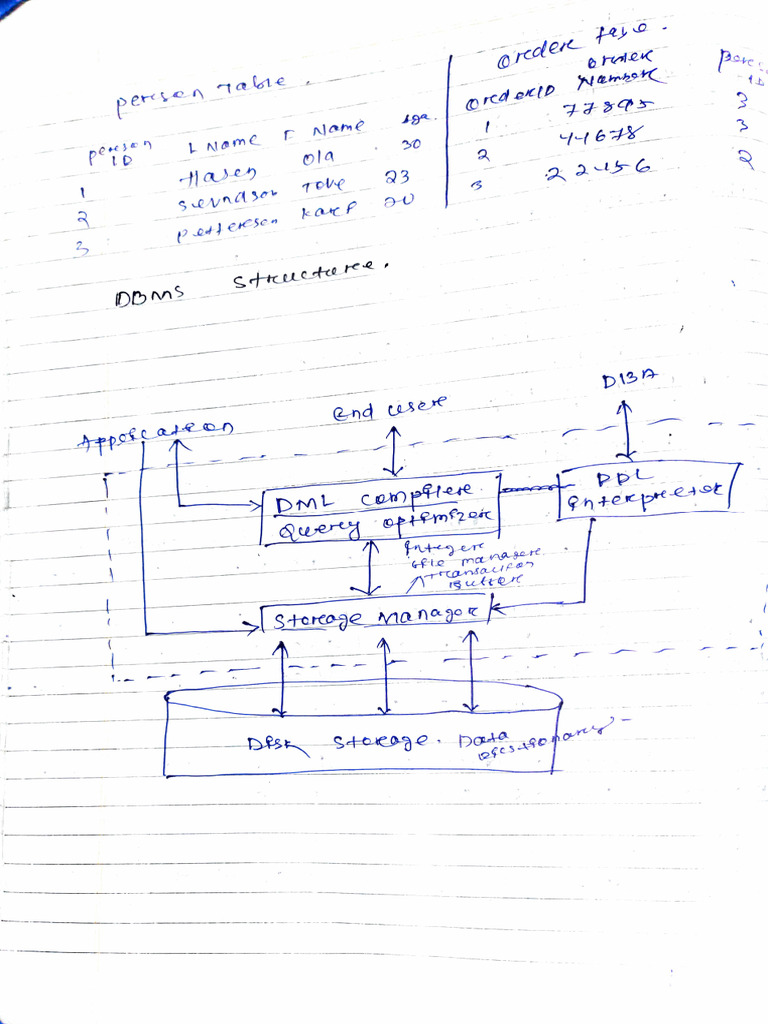 person Table.
person ID L Name F Name Age.
1 Hasen Ola 30
2 Svendson Tove 23
3 Pettersen Karf 20
Order
Order Number
OrderID
1 77895 3
2 44678 3
3 22456 2
DBMS Structure.
Application
End user
DBA
DML Compiler
Query optimizer
DDL
interpreter
file manager
transaction
Buffer
Storage Manager
Disk Storage. Data